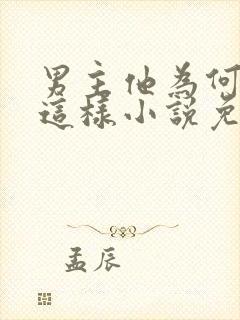 男主他為何
這樣小說免
孟辰